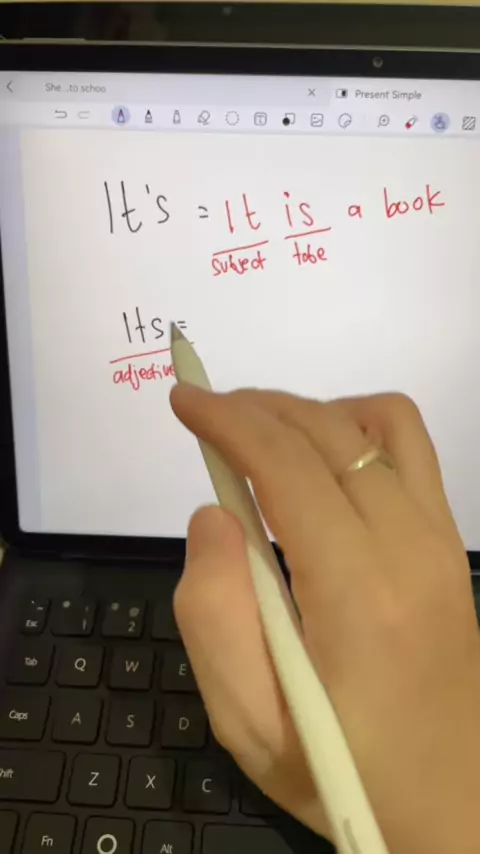 She...to schoo
Present Simple
It's = It is a book
subject tobe
Its =
adjective
Esc 1 2
Tab Q W E
Caps A S D
Shift Z X C
Fn Alt